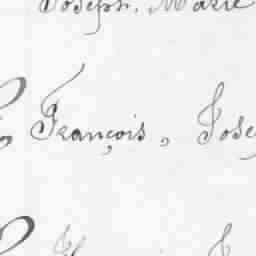 Joseph, Marie
François, Jose